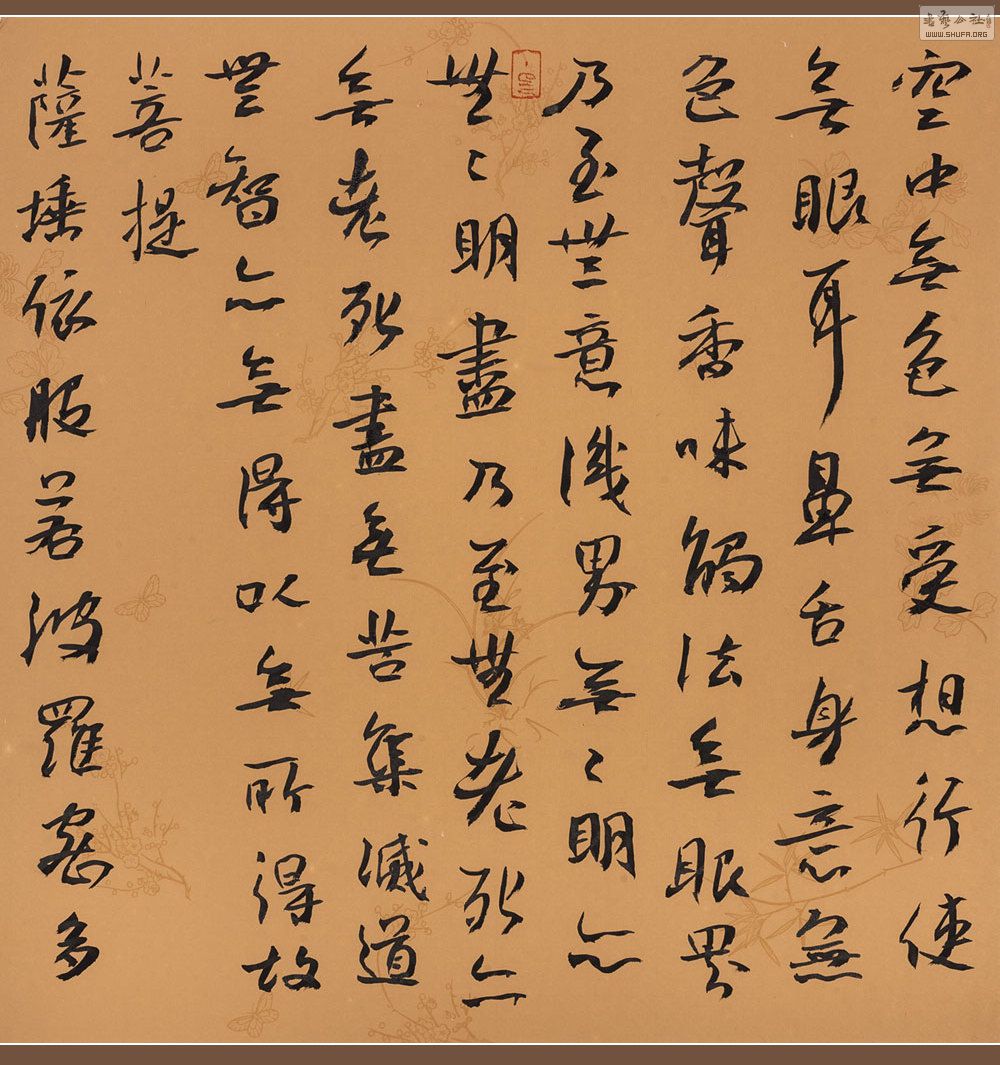 空中無色無受想行使
無眼耳鼻舌身意無
色聲香味觸法無眼界
乃至無意識界無〻明亦
無〻明盡乃至無老死亦
無老死盡無苦集滅道
無智亦無得以無所得故
菩提
薩埵依般若波羅蜜多
書藝公社
WWW.SHUFA.ORG